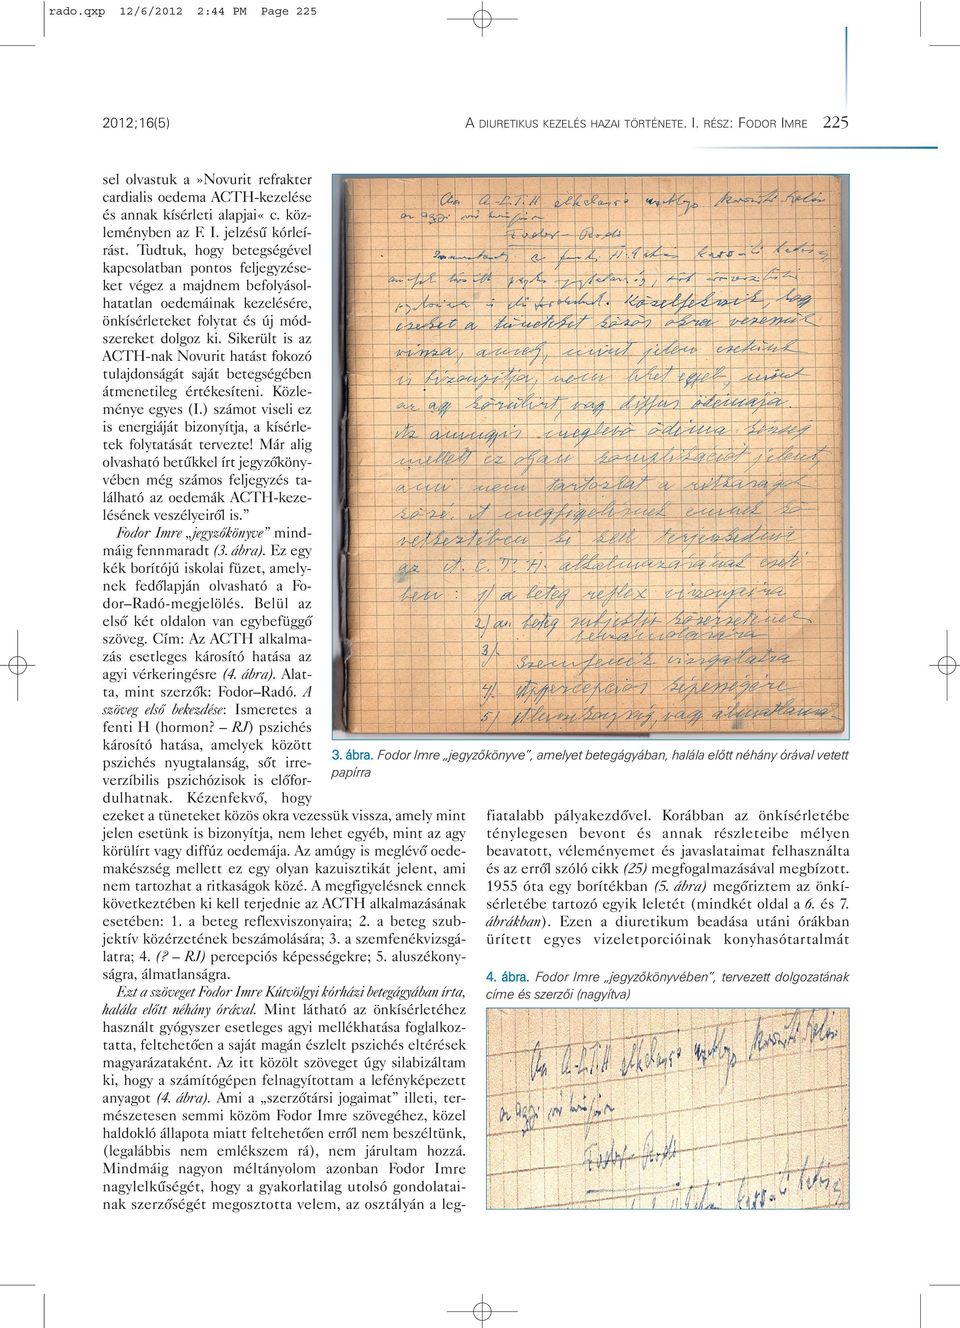 rado.qxp 12/6/2012 2:44 PM Page 225
2012;16(5)
A DIURETIKUS KEZELÉS HAZAI TÖRTÉNETE. I. RÉSZ: FODOR IMRE 225
sel olvastuk a »Novurit refrakter
cardialis oedema ACTH-kezelése
és annak kísérleti alapjai« c. köz-
leményben az F. I. jelzésű kórleí-
rást. Tudtuk, hogy betegségével
kapcsolatban pontos feljegyzése-
ket végez a majdnem befolyásol-
hatatlan oedemáinak kezelésére,
önkísérleteket folytat és új mód-
szereket dolgoz ki. Sikerült is az
ACTH-nak Novurit hatást fokozó
tulajdonságát saját betegségében
átmenetileg értékesíteni. Közle-
ménye egyes (I.) számot viseli ez
is energiáját bizonyítja, a kísérle-
tek folytatását tervezte! Már alig
olvasható betűkkel írt jegyzőköny-
vében még számos feljegyzés ta-
lálható az oedemák ACTH-keze-
lésének veszélyeiről is.”
Fodor Imre „jegyzőkönyve” mind-
máig fennmaradt (3. ábra). Ez egy
kék borítójú iskolai füzet, amely-
nek fedőlapján olvasható a Fo-
dor–Radó-megjelölés. Belül az
első két oldalon van egybefüggő
szöveg. Cím: Az ACTH alkalma-
zás esetleges károsító hatása az
agyi vérkeringésre (4. ábra). Alat-
ta, mint szerzők: Fodor–Radó. A
szöveg első bekezdése: Ismeretes a
fenti H (hormon? – RJ) pszichés
károsító hatása, amelyek között
pszichés nyugtalanság, sőt irre-
verzíbilis pszichózisok is előfor-
dulhatnak. Kézenfekvő, hogy
ezeket a tüneteket közös okra vezessük vissza, amely mint
jelen esetünk is bizonyítja, nem lehet egyéb, mint az agy
körülírt vagy diffúz oedemája. Az amúgy is meglévő oede-
makészség mellett ez egy olyan kazuisztikát jelent, ami
nem tartozhat a ritkaságok közé. A megfigyelésnek ennek
következtében ki kell terjednie az ACTH alkalmazásának
esetében: 1. a beteg reflexviszonyaira; 2. a beteg szub-
jektív közérzetének beszámolására; 3. a szemfenékvizsgá-
latra; 4. (? – RJ) percepciós képességekre; 5. aluszékony-
ságra, álmatlanságra.
Ezt a szöveget Fodor Imre Kútvölgyi kórházi betegágyában írta,
halála előtt néhány órával. Mint látható az önkísérletéhez
használt gyógyszer esetleges agyi mellékhatása foglalkoz-
tatta, feltehetően a saját magán észlelt pszichés eltérések
magyarázataként. Az itt közölt szöveget úgy silabizáltam
ki, hogy a számítógépen felnagyítottam a lefényképezett
anyagot (4. ábra). Ami a „szerzőtársi jogaimat” illeti, ter-
mészetesen semmi közöm Fodor Imre szövegéhez, közel
haldokló állapota miatt feltehetően erről nem beszéltünk,
(legalábbis nem emlékszem rá), nem járultam hozzá.
Mindmáig nagyon méltányolom azonban Fodor Imre
nagylelkűségét, hogy a gyakorlatilag utolsó gondolatai-
nak szerzőségét megosztotta velem, az osztályán a leg-
Fodor–Radó
ezeket a tüneteket közös okra vezessük
vissza, amely, mint jelen esetünk
is bizonyítja, nem lehet egyéb, mint
az agy körülírt vagy diffus ödemája.
Az amugis meglevő ödéma készség
mellett ez olyan komplikációt jelent,
ami nem tartozhat a ritkaságok
közé. A megfigyelésnek ennek kö
vetkeztében ki kell terjeszkednie
az A.C.T.H. alkalmazásának eseté
ben: 1) a beteg reflex viszonyaira
2) a beteg subjectiv közérzetének
beszámolására
3) Szemfenék vizsgálatra
4) Appercepciós képességére
5)
3. ábra. Fodor Imre „jegyzőkönyve”, amelyet betegágyában, halála előtt néhány órával vetett
papírra
fiatalabb pályakezdővel. Korábban az önkísérletébe
ténylegesen bevont és annak részleteibe mélyen
beavatott, véleményemet és javaslataimat felhasználta
és az erről szóló cikk (25) megfogalmazásával megbízott.
1955 óta egy borítékban (5. ábra) megőriztem az önkí-
sérletébe tartozó egyik leletét (mindkét oldal a 6. és 7.
ábrákban). Ezen a diuretikum beadása utáni órákban
ürített egyes vizeletporcióinak konyhasótartalmát
4. ábra. Fodor Imre „jegyzőkönyvében”, tervezett dolgozatának
címe és szerzői (nagyítva)
Fodor–Radó